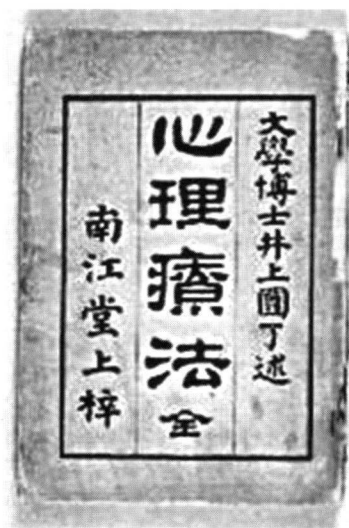 文學博士井上圓了述
心理療法 全
南江堂上梓